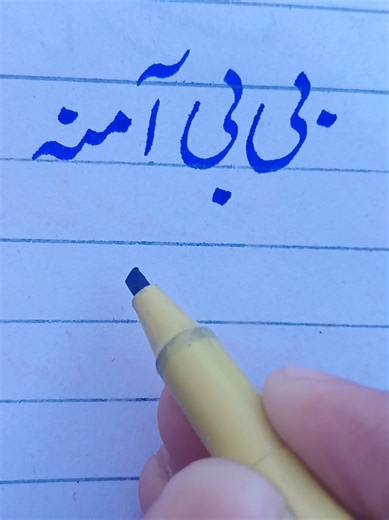 بی بی آمنہ